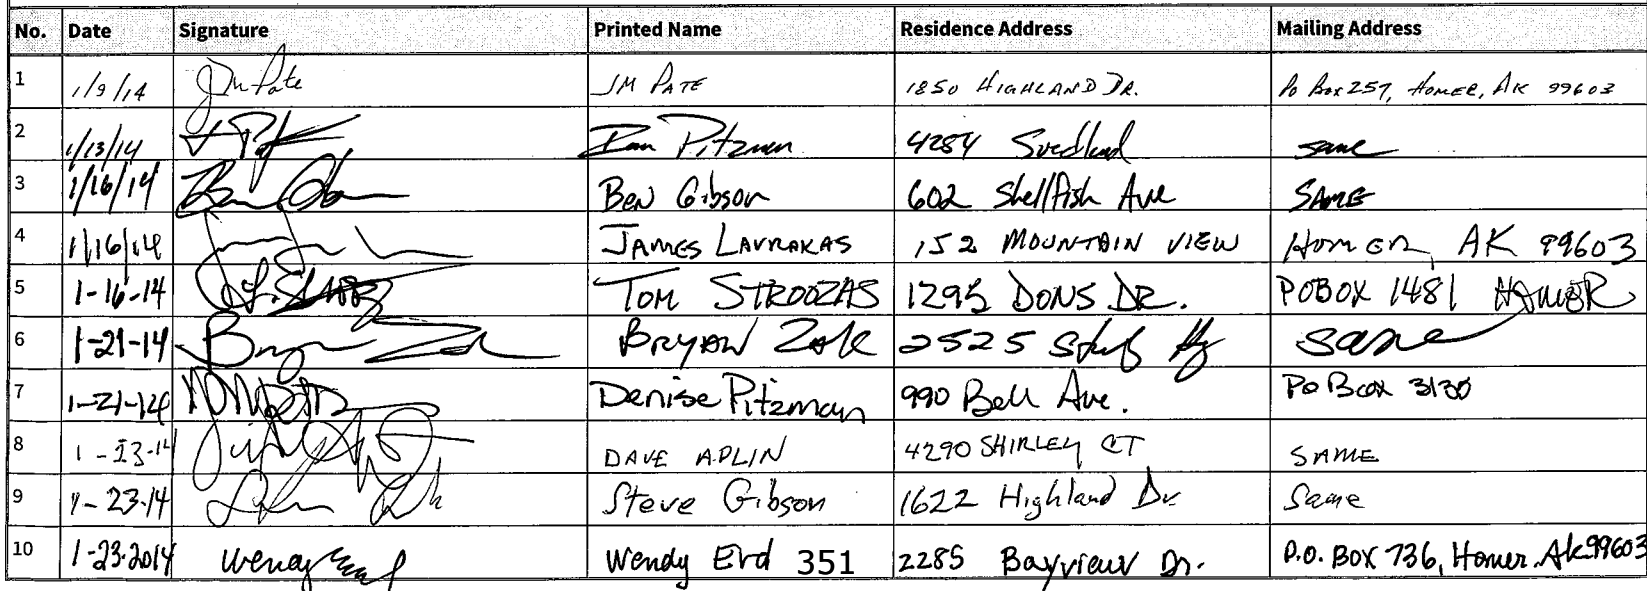 No. Date Signature Printed Name Residence Address Mailing Address
1 1/9/14 JM Pate JM PATE 1850 HIGHLAND DR. Po Box 257, HOMER, AK 99603
2 1/13/14 Pitzman 4284 Svedlund same
3 1/16/14 Ben Gibson 602 Shellfish Ave SAME
4 1/16/14 JAMES LAVRAKAS 152 MOUNTAIN VIEW HOMER, AK 99603
5 1-16-14 TOM STROOZAS 1295 DONS DR. POBOX 1481 HOMER
6 1-21-14 BRYAN Zak 2525 same
7 1-21-14 Denise Pitzman 990 Bell Ave. Po Box 3130
8 1-23-14 DAVE APLIN 4290 SHIRLEY CT SAME
9 1-23-14 Steve Gibson 1622 Highland Dr Same
10 1-23-2014 Wendy Wendy Erd 351 2285 Bayview Dr. P.O. BOX 736, Homer Ak 99603